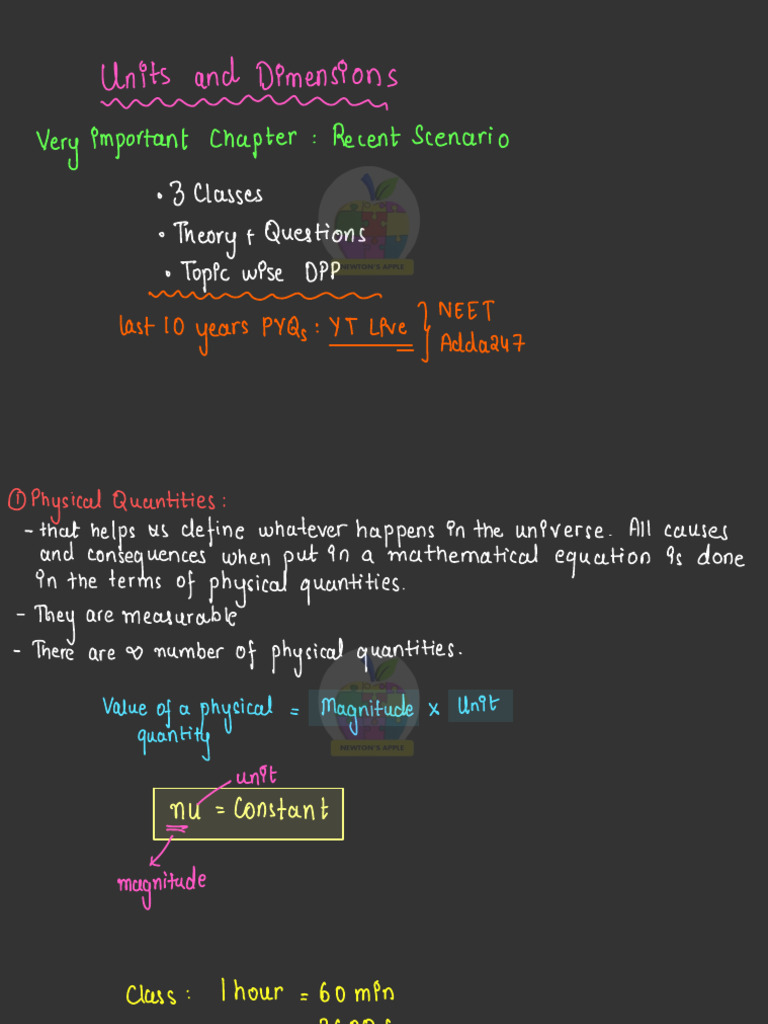 Units and Dimensions
Very Important Chapter : Recent Scenario
• 3 Classes
• Theory + Questions
• Topic wise DPP
NEWTON'S APPLE
last 10 years PYQs : YT Live } NEET
Adda247
① Physical Quantities :
- that helps us define whatever happens in the universe. All causes
and consequences when put in a mathematical equation is done
in the terms of physical quantities.
- They are measurable
- There are ∞ number of physical quantities.
Value of a physical = Magnitude x Unit
quantity
NEWTON'S APPLE
unit
nu = Constant
magnitude
Class : 1 hour = 60 min